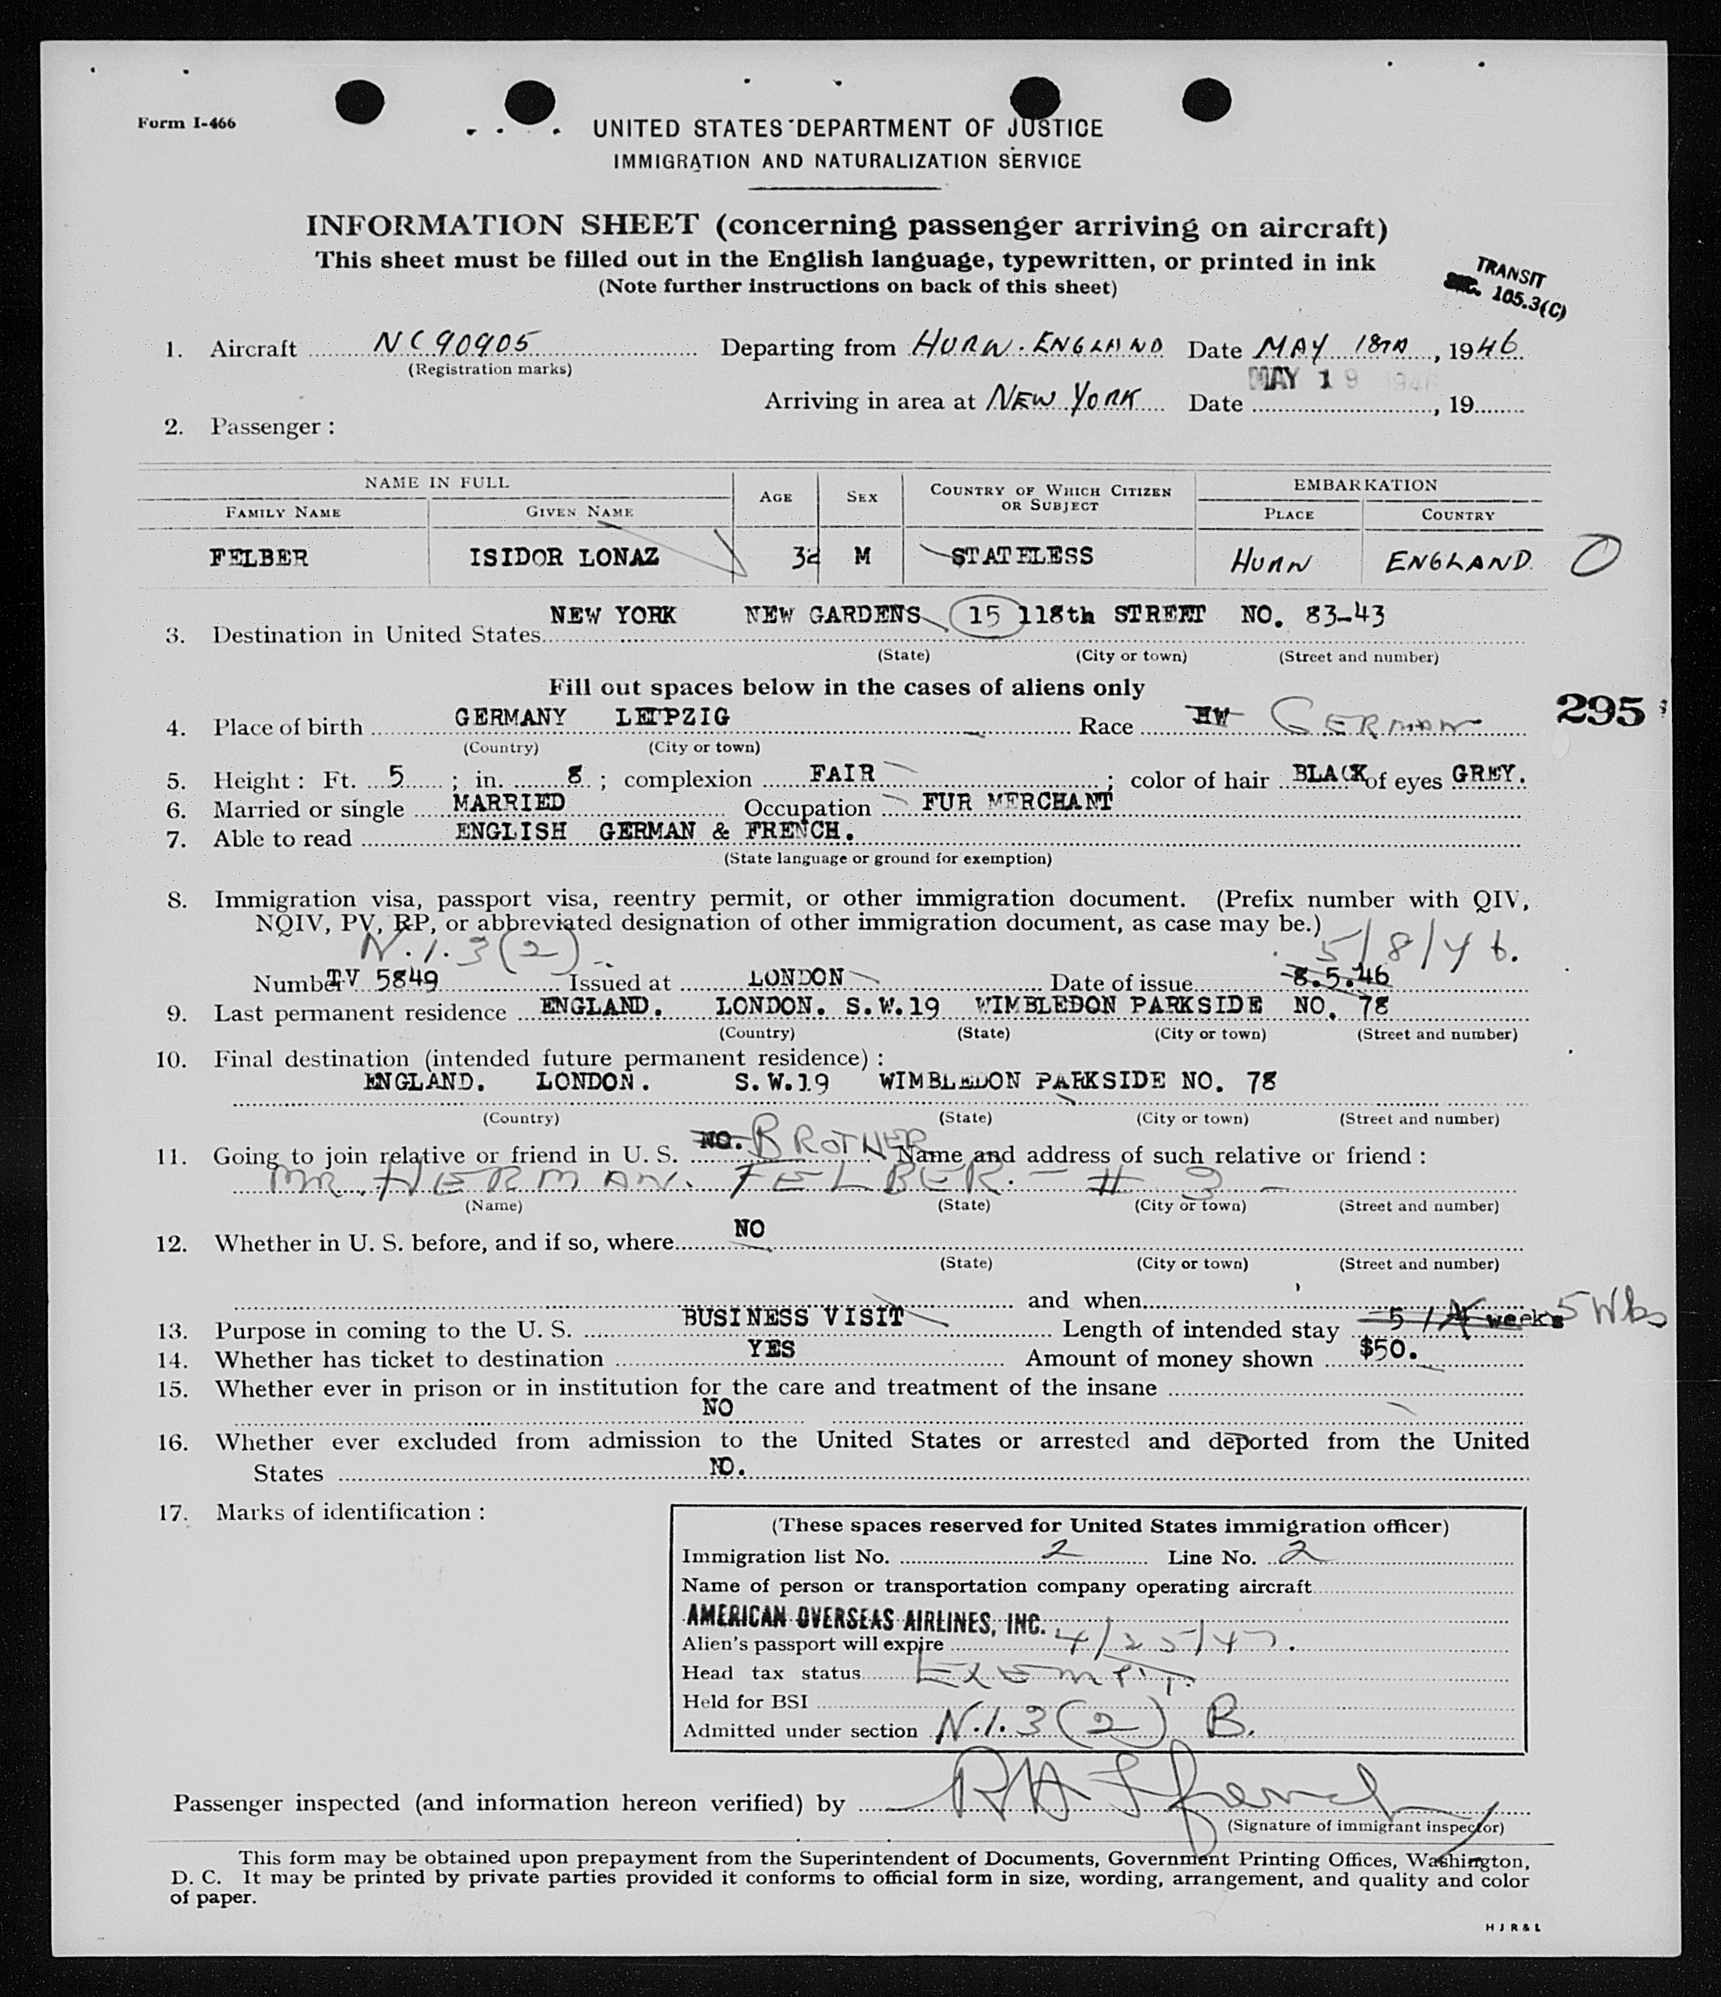 Form I-466
UNITED STATES DEPARTMENT OF JUSTICE
IMMIGRATION AND NATURALIZATION SERVICE
INFORMATION SHEET (concerning passenger arriving on aircraft)
This sheet must be filled out in the English language, typewritten, or printed in ink
(Note further instructions on back of this sheet)
TRANSIT
SEC. 105.3(C)
1. Aircraft NC90905 Departing from HURN. ENGLAND Date MAY 18TH, 1946
(Registration marks)
MAY 19 1946
Arriving in area at NEW YORK Date , 19
2. Passenger :
NAME IN FULL AGE SEX COUNTRY OF WHICH CITIZEN OR SUBJECT EMBARKATION
FAMILY NAME GIVEN NAME PLACE COUNTRY
FELBER ISIDOR LONAZ M STATELESS HURN ENGLAND. O
3. Destination in United States NEW YORK NEW GARDENS 15 118th STREET NO. 83-43
(State) (City or town) (Street and number)
Fill out spaces below in the cases of aliens only
295
4. Place of birth GERMANY LEIPZIG Race HW GERMAN
(Country) (City or town)
5. Height : Ft. 5 ; in. 8 ; complexion FAIR ; color of hair BLACK of eyes GREY.
6. Married or single MARRIED Occupation FUR MERCHANT
7. Able to read ENGLISH GERMAN & FRENCH.
(State language or ground for exemption)
8. Immigration visa, passport visa, reentry permit, or other immigration document. (Prefix number with QIV,
NQIV, PV, RP, or abbreviated designation of other immigration document, as case may be.)
N.I.3(2) 5/8/46.
Number TV 5849 Issued at LONDON Date of issue 8.5.46
9. Last permanent residence ENGLAND. LONDON. S.W.19 WIMBLEDON PARKSIDE NO. 78
(Country) (State) (City or town) (Street and number)
10. Final destination (intended future permanent residence) :
ENGLAND. LONDON. S.W.19 WIMBLEDON PARKSIDE NO. 78
(Country) (State) (City or town) (Street and number)
11. Going to join relative or friend in U. S. NO. BROTHER Name and address of such relative or friend :
MR. HERMAN. FELBER. - # 3 -
(Name) (State) (City or town) (Street and number)
12. Whether in U. S. before, and if so, where NO
(State) (City or town) (Street and number)
and when
13. Purpose in coming to the U. S. BUSINESS VISIT Length of intended stay weeks 5 Wks
14. Whether has ticket to destination YES Amount of money shown $50.
15. Whether ever in prison or in institution for the care and treatment of the insane
NO
16. Whether ever excluded from admission to the United States or arrested and deported from the United
States NO.
17. Marks of identification :
(These spaces reserved for United States immigration officer)
Immigration list No. 2 Line No. 2
Name of person or transportation company operating aircraft
AMERICAN OVERSEAS AIRLINES, INC.
Alien's passport will expire 4/25/47.
Head tax status EXEMPT.
Held for BSI
Admitted under section N.I.3(2) B.
Passenger inspected (and information hereon verified) by
(Signature of immigrant inspector)
This form may be obtained upon prepayment from the Superintendent of Documents, Government Printing Offices, Washington,
D. C. It may be printed by private parties provided it conforms to official form in size, wording, arrangement, and quality and color
of paper.
H J R & L